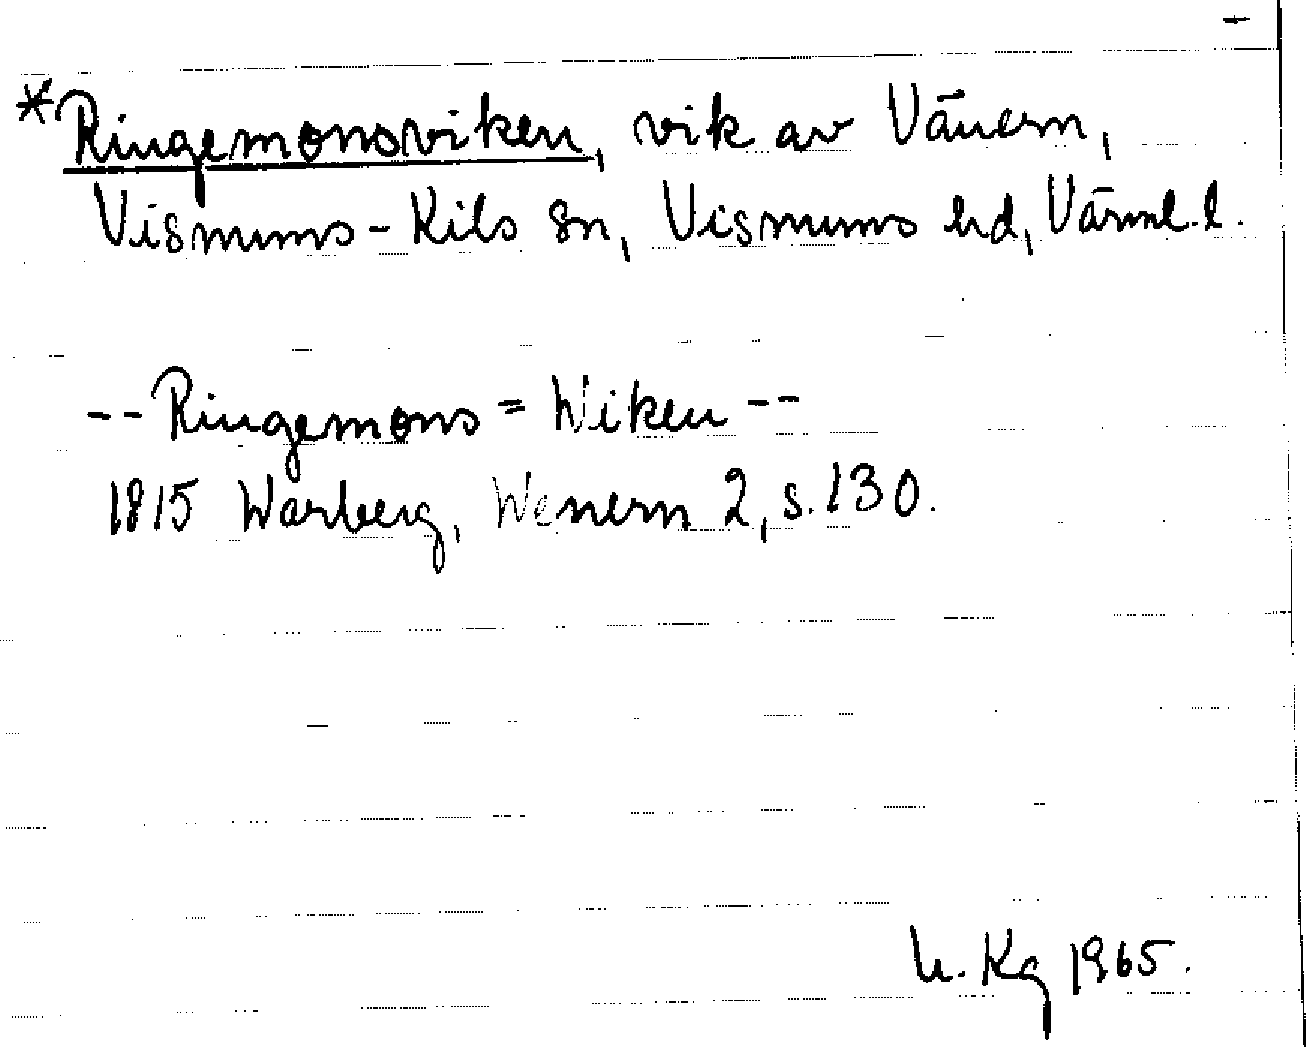 *Ringemonsviken, vik av Vänern,
Visnums-Kils sn, Visnums hd, Värml. l.
--Ringemons=Wiken--
1815 Warberg, Wenern 2, s. 130.
U. Kg 1965.